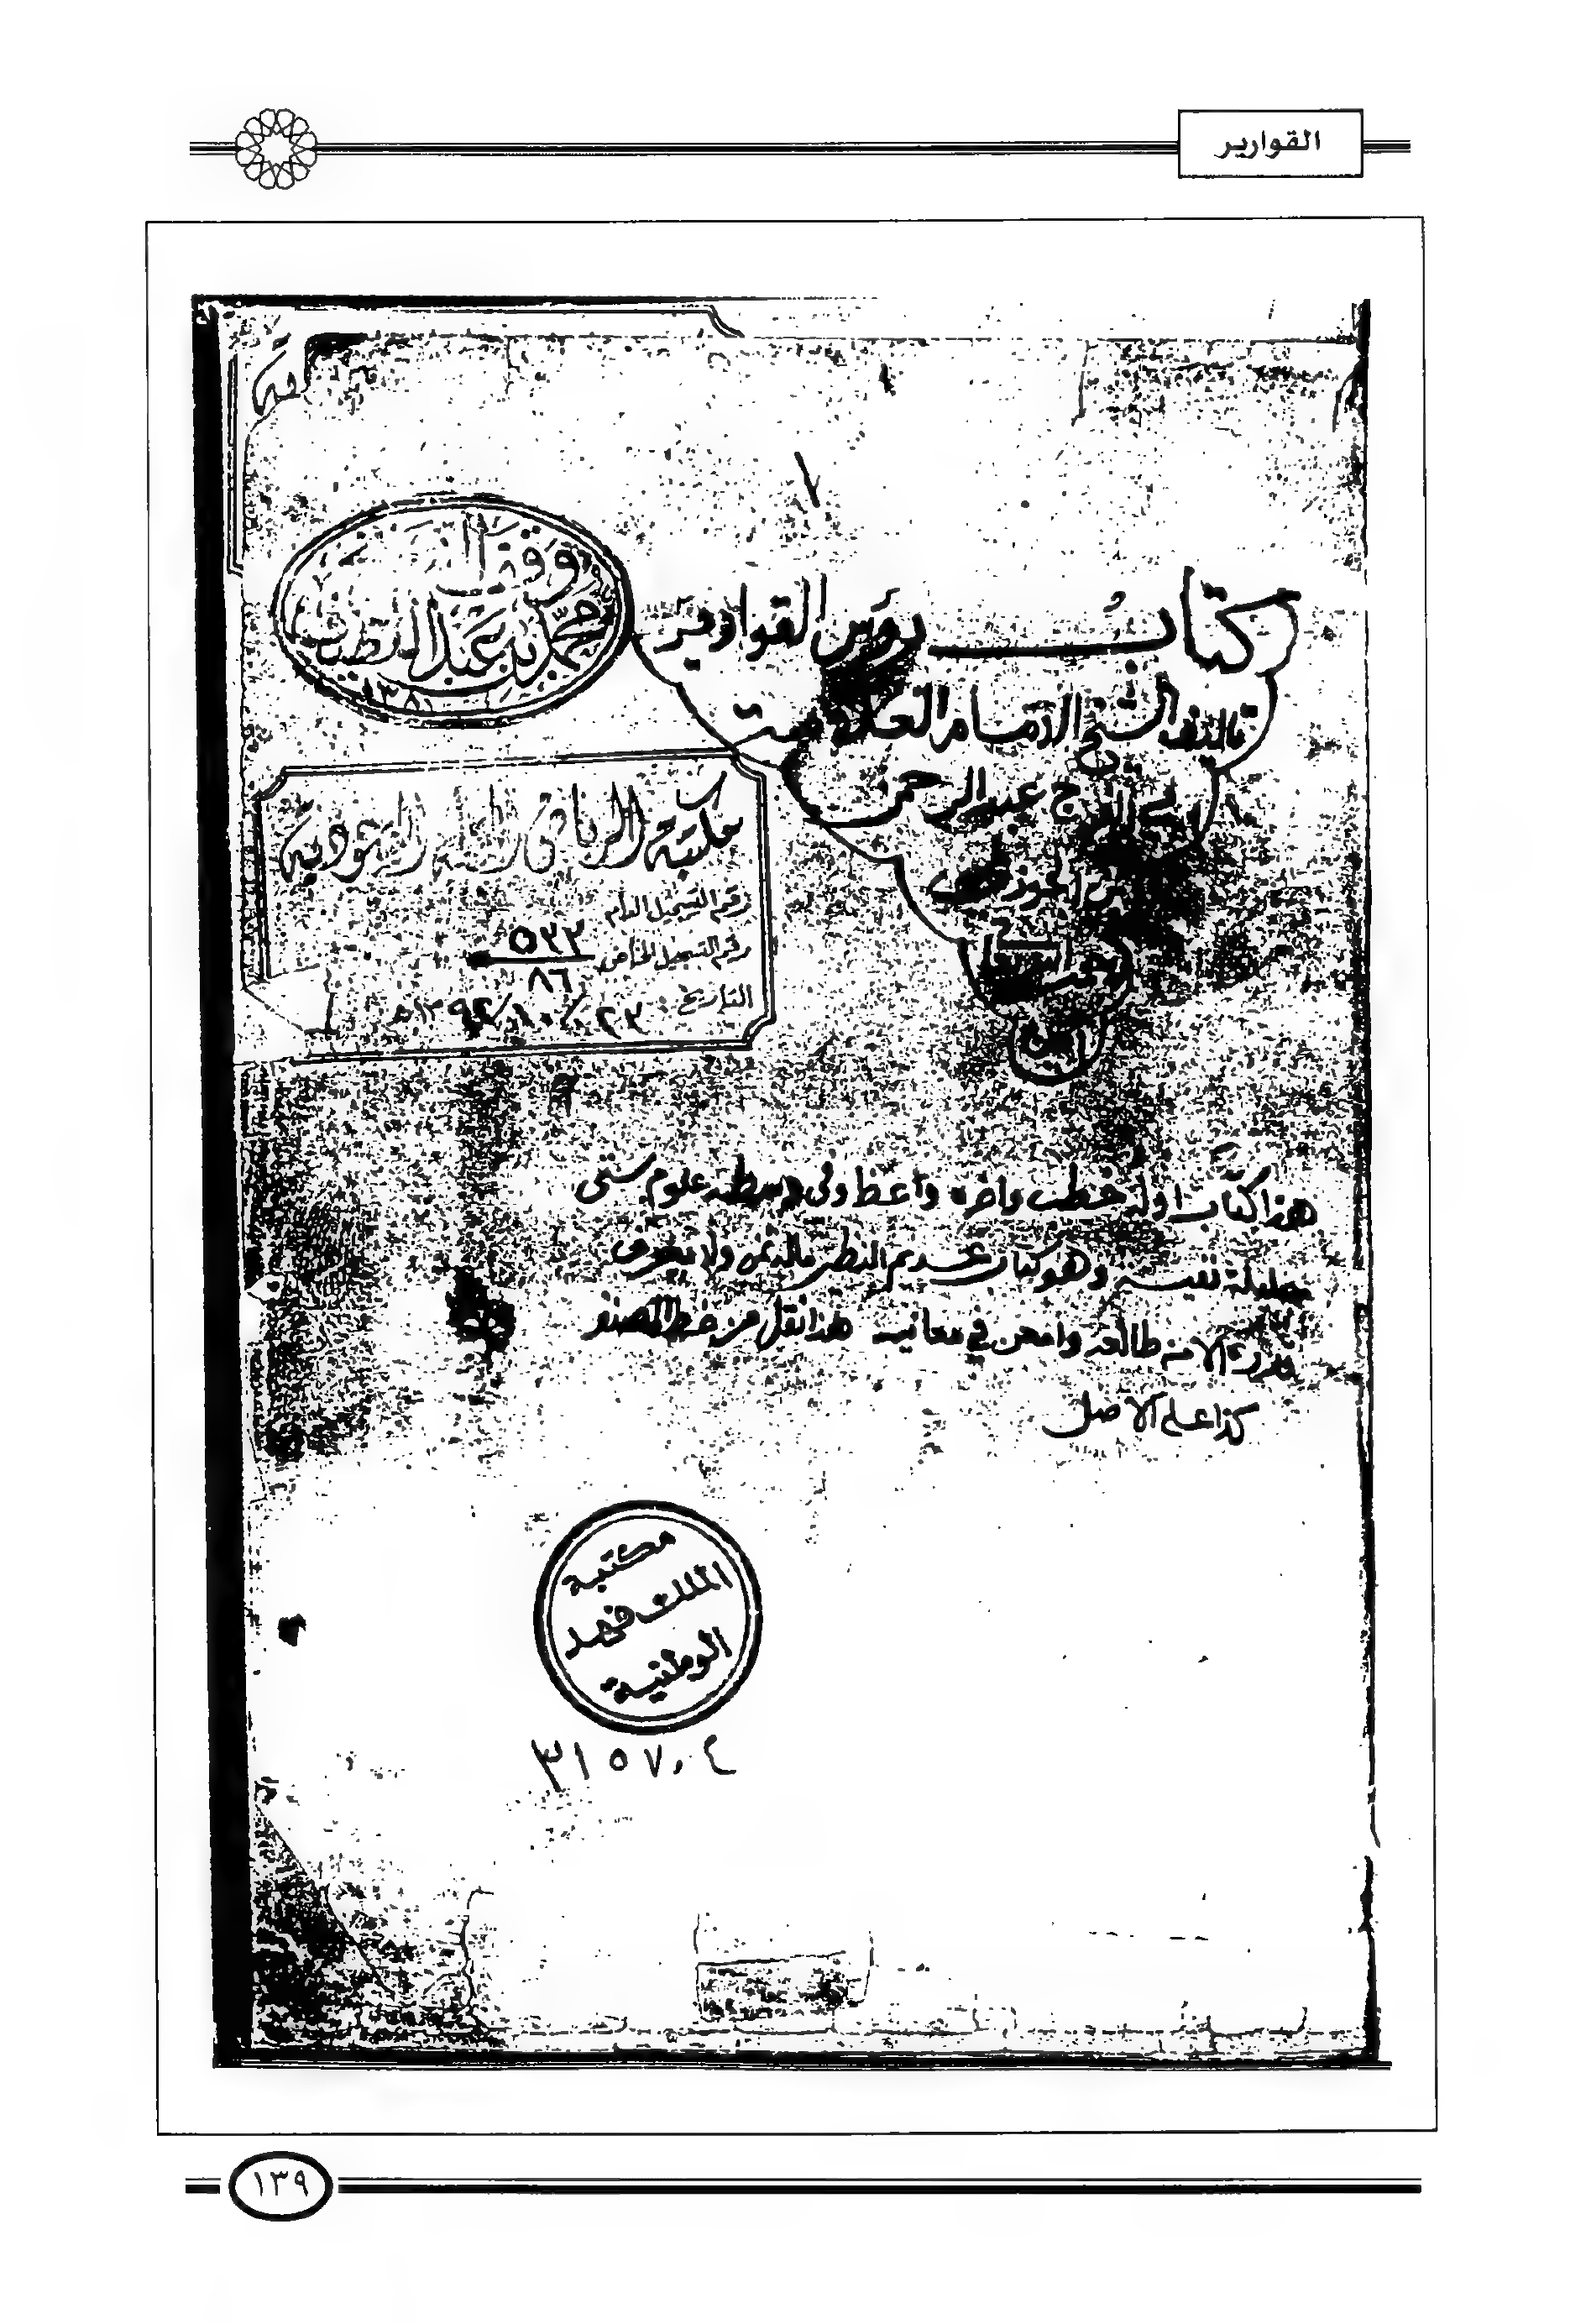 القوارير
كتاب رؤس القوارير
تاليف الشيخ الامام العلامة
ابي الفرج عبد الرحمن
بن الجوزي
امين
وقف
محمد بن عبد اللطيف
١٣٨١
مكتبة الرياض السعودية
رقم التسجيل العام
رقم التسجيل الخاص ٥٣٣
٨٦
التاريخ ٢٣/١٠/١٣٩٢ه
هذا كتاب اوله خطب واخره واعظ وفي واسطته علوم شتى
جليلة نفيسه وهو كتاب عديم النظير ولا يعرف
قدره الا من طالعه وامعن في معانيه هذا نقل من خط المصنف
كذا على الاصل
مكتبة
الملك فهد
الوطنية
٣١٥٧٠٤
١٣٩